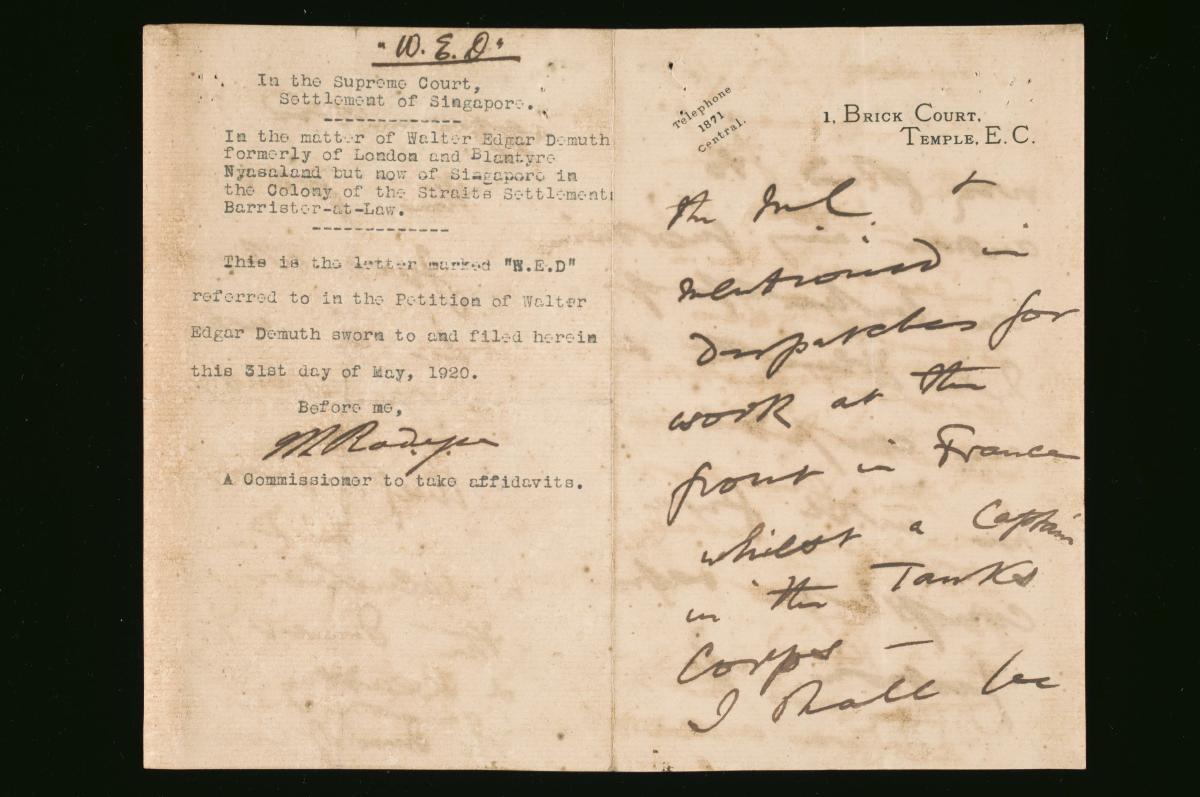 "W. E. D"
In the Supreme Court,
Settlement of Singapore.
In the matter of Walter Edgar Demuth
formerly of London and Blantyre
Nyasaland but now of Singapore in
the Colony of the Straits Settlements
Barrister-at-Law.
This is the letter marked "W.E.D"
referred to in the Petition of Walter
Edgar Demuth sworn to and filed herein
this 31st day of May, 1920.
Before me,
A Commissioner to take affidavits.
Telephone
1871
Central.
1, Brick Court,
Temple, E.C.
the
mentioned in
Despatches for
work at the
front in France
whilst a Captain
in the Tanks
Corps —
I shall be